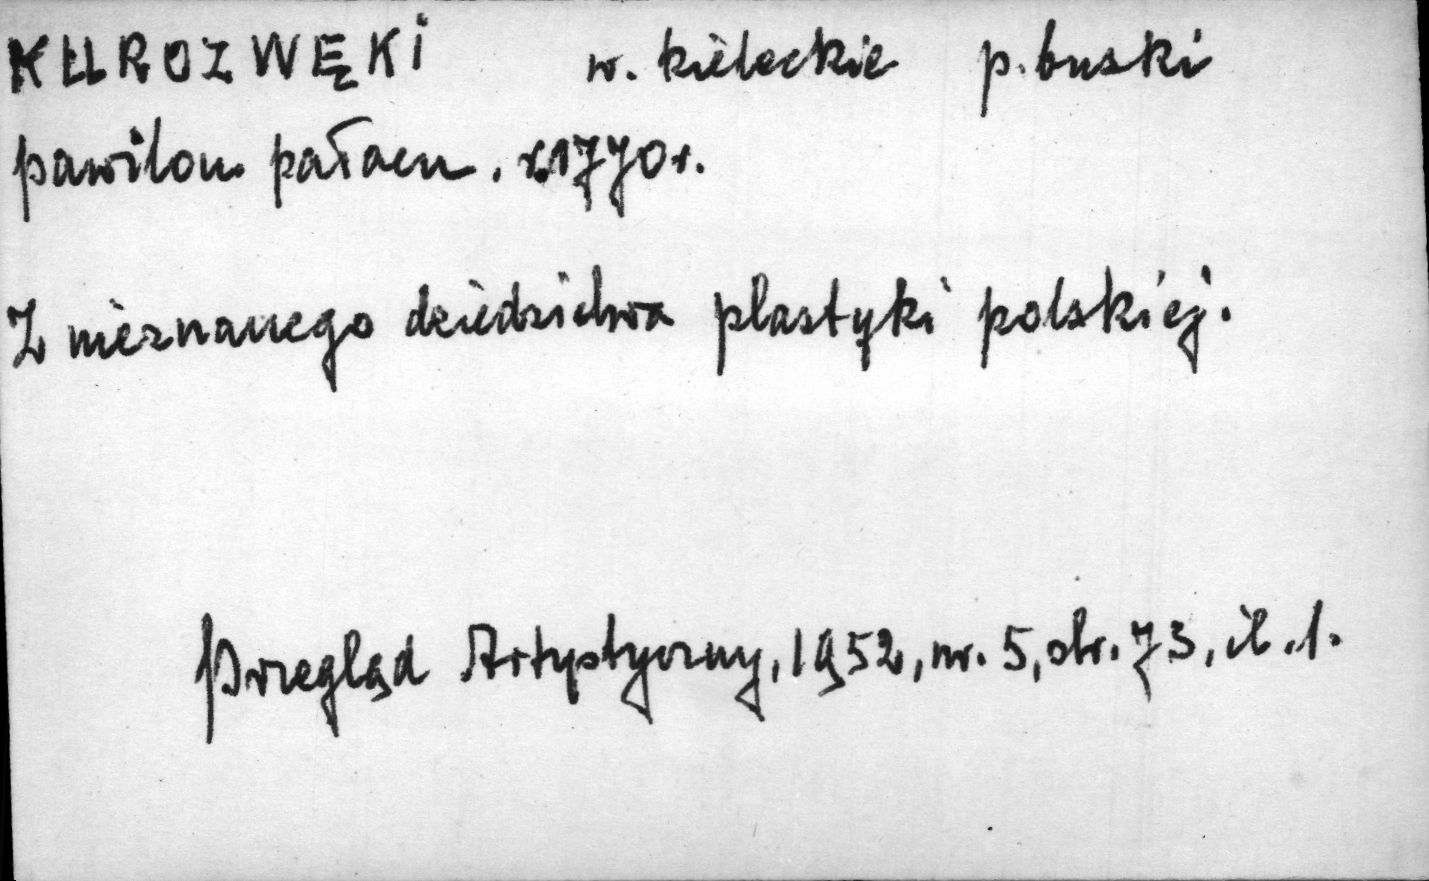 KUROZWĘKI w. kieleckie p. buski
pawilon pałacu. z.1770r.
Z nieznanego dziedzictwa plastyki polskiej.
Przegląd Artystyczny, 1952, nr. 5, str. 73, il. 1.